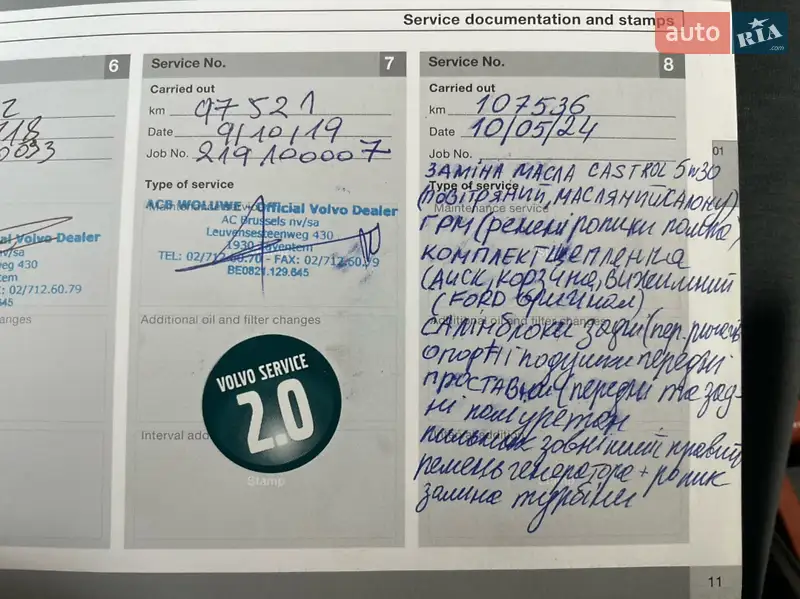 Service documentation and stamps
auto RIA .com
6
118
al Volvo Dealer
nv/sa
eg 430
tem
: 02/712.60.79
645
anges
Service No. 7
Carried out
km 97521
Date 9/10/19
Job No. 219100007
Type of service
Maintenance service
ACB WOLUWE - Official Volvo Dealer
AC Brussels nv/sa
Leuvensesteenweg 430
1930 Zaventem
TEL: 02/712.60.70 - FAX: 02/712.60.79
BE0821.129.645
Additional oil and filter changes
VOLVO SERVICE
2.0
Interval add
Stamp
Service No. 8
Carried out
km 107536
Date 10/05/24
Job No.
01
Type of service
Maintenance service
Additional oil and filter changes
ЗАМІНА МАСЛА CASTROL 5w30
(повітряний, масляний, салону)
ГРМ (ремені ролики помпа)
КОМПЛЕКТ ЩЕПЛЕННА
(Диск, корзина, вижимний
(FORD оригинал)
САЛІНБЛОКИ задні (пер. рычагів
опорні подушки передні
проставки (передні та зад-
ні поліуретан
зовнішній правий
ремень генератора + ролик
заміна турбіни
11